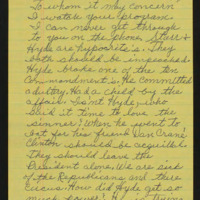 To whom it may concern
I watch your program.
I can never get through
to you on the phone. Starr &
Hyde are hypocrite's. They
both should be impeached.
Hyde broke one of the ten
Commandment's. He Committed
adultry. Had a child by the
affair. Isn't Hyde who
said it time to love the
sinner? When he went to
bat for his friend Dan Crane?
Clinton should be acquitted.
They should leave the
President alone. We are sick
of the Republicans and there
Circus. How did Hyde get so
much power?